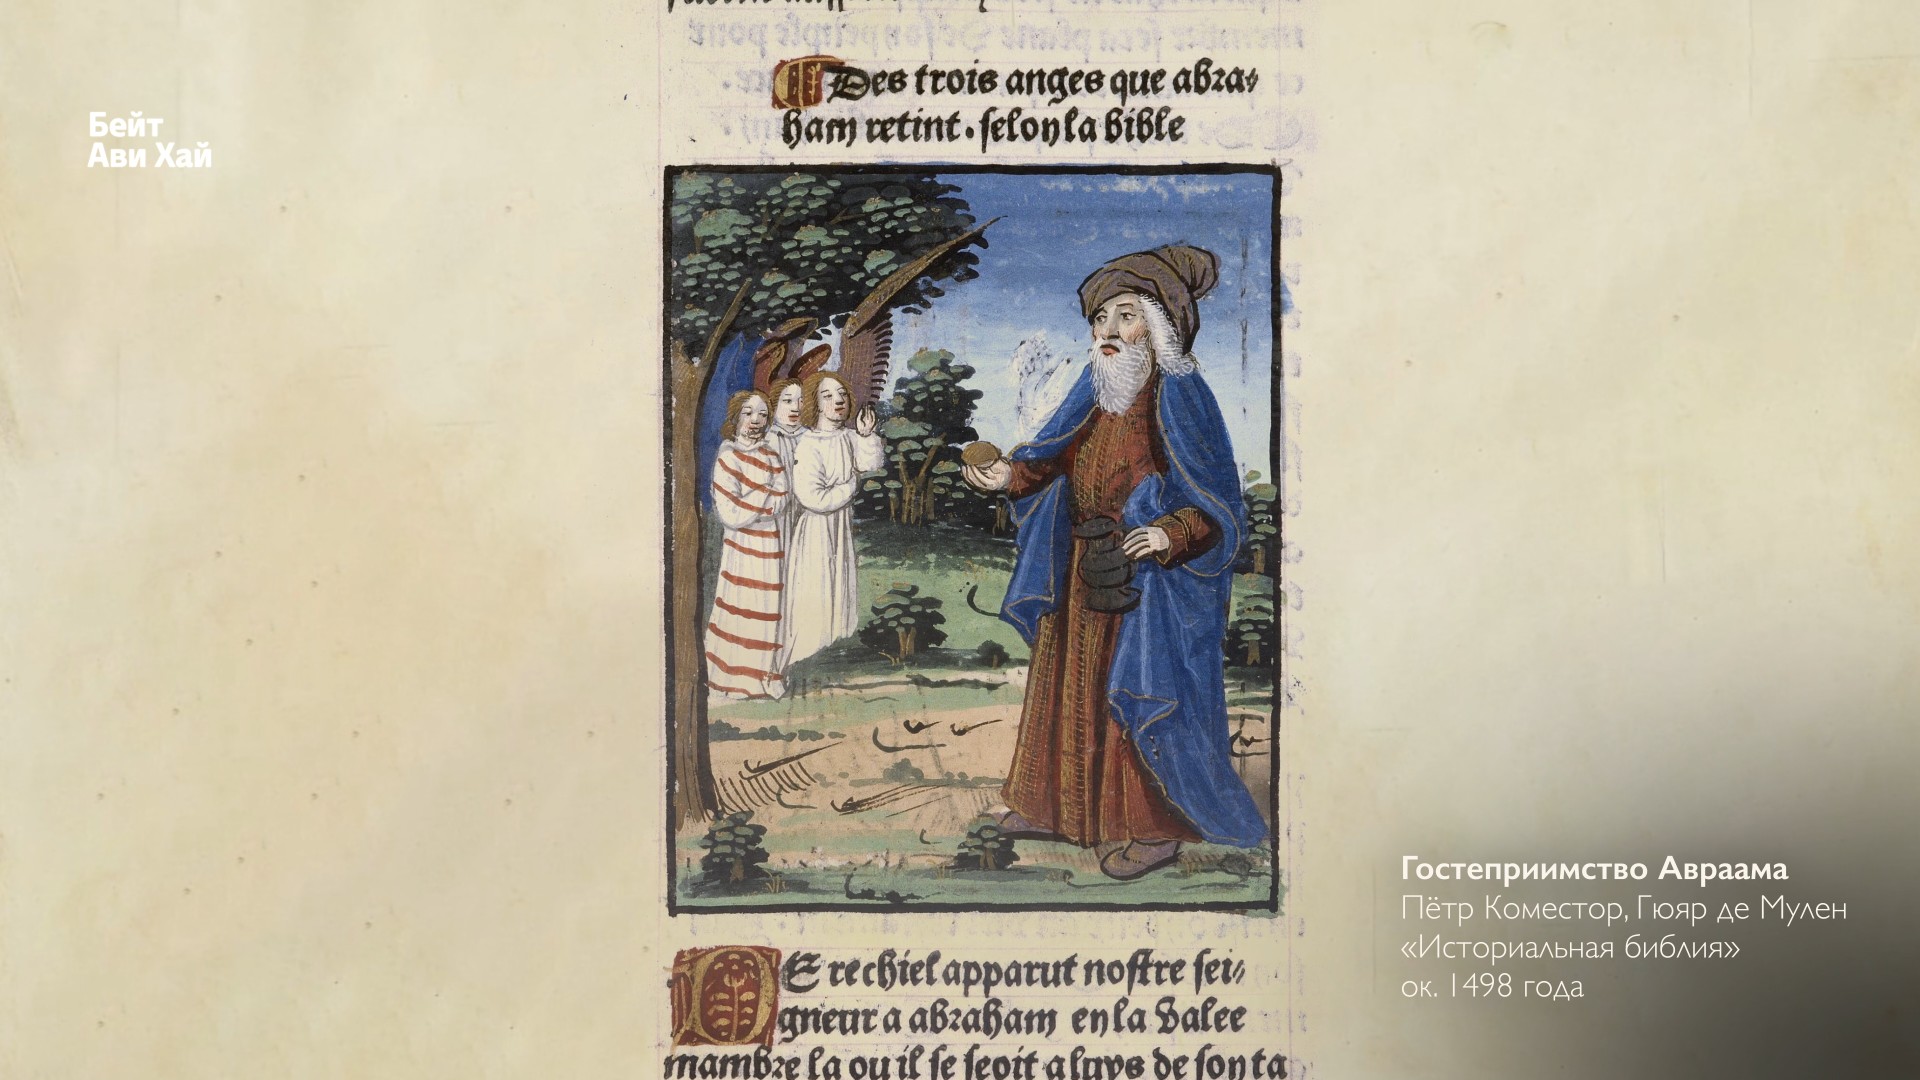 Бейт
Ави Хай
Des trois anges que abra-
ham retint. selon la bible
E rechief apparut nostre sei-
gneur a abraham en la valee
mambre la ou il se seoit a luys de son ta
Гостеприимство Авраама
Пётр Коместор, Гюяр де Мулен
«Историальная библия»
ок. 1498 года